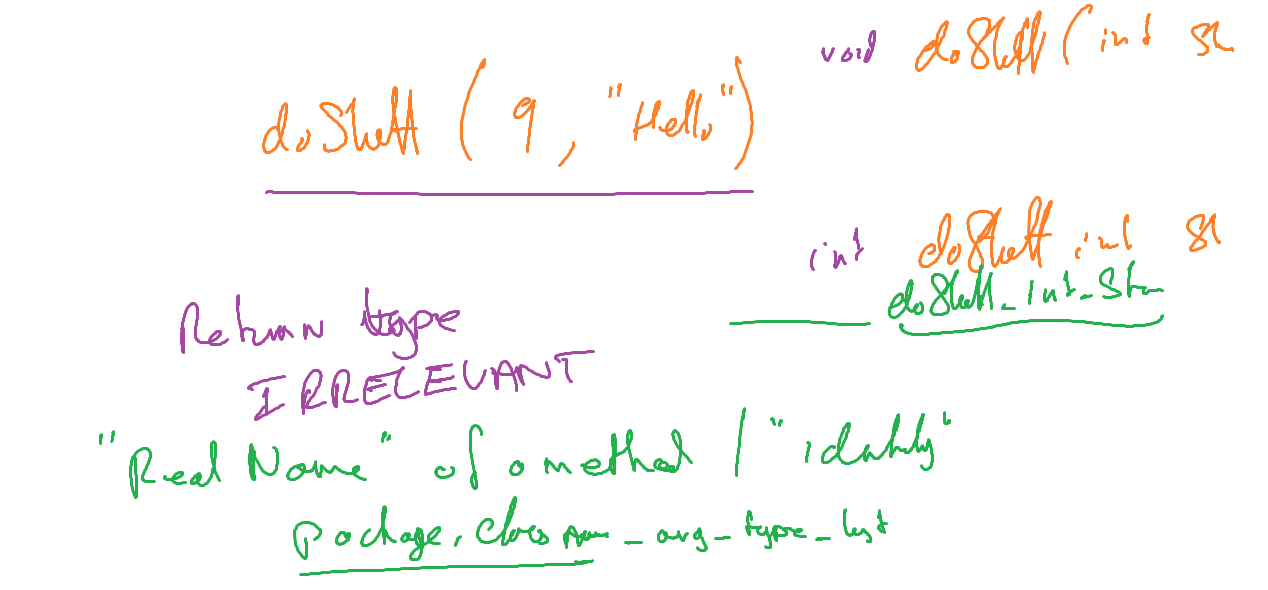 void doStuff ( int St
doStuff ( 9 , "Hello" )
int doStuff int St
doStuff_Int_Str
Return type
IRRELEVANT
"Real Name" of a method / "identity"
package.class name_arg_type_list